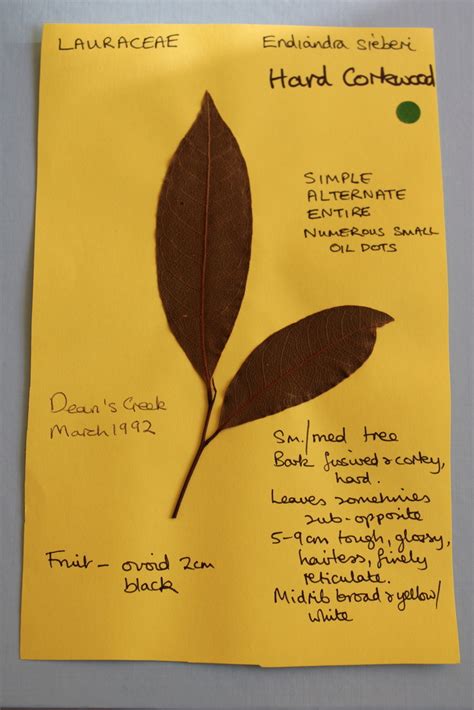 LAURACEAE
Endiandra sieberi
Hard Corkwood
SIMPLE
ALTERNATE
ENTIRE
NUMEROUS SMALL
OIL DOTS
Dean's Creek
March 1992
Sm./med tree
Bark fissured & corkey,
hard.
Leaves sometimes
sub-opposite
5-9cm tough, glossy,
hairless, finely
reticulate.
Midrib broad & yellow/
white
Fruit – ovoid 2cm
black